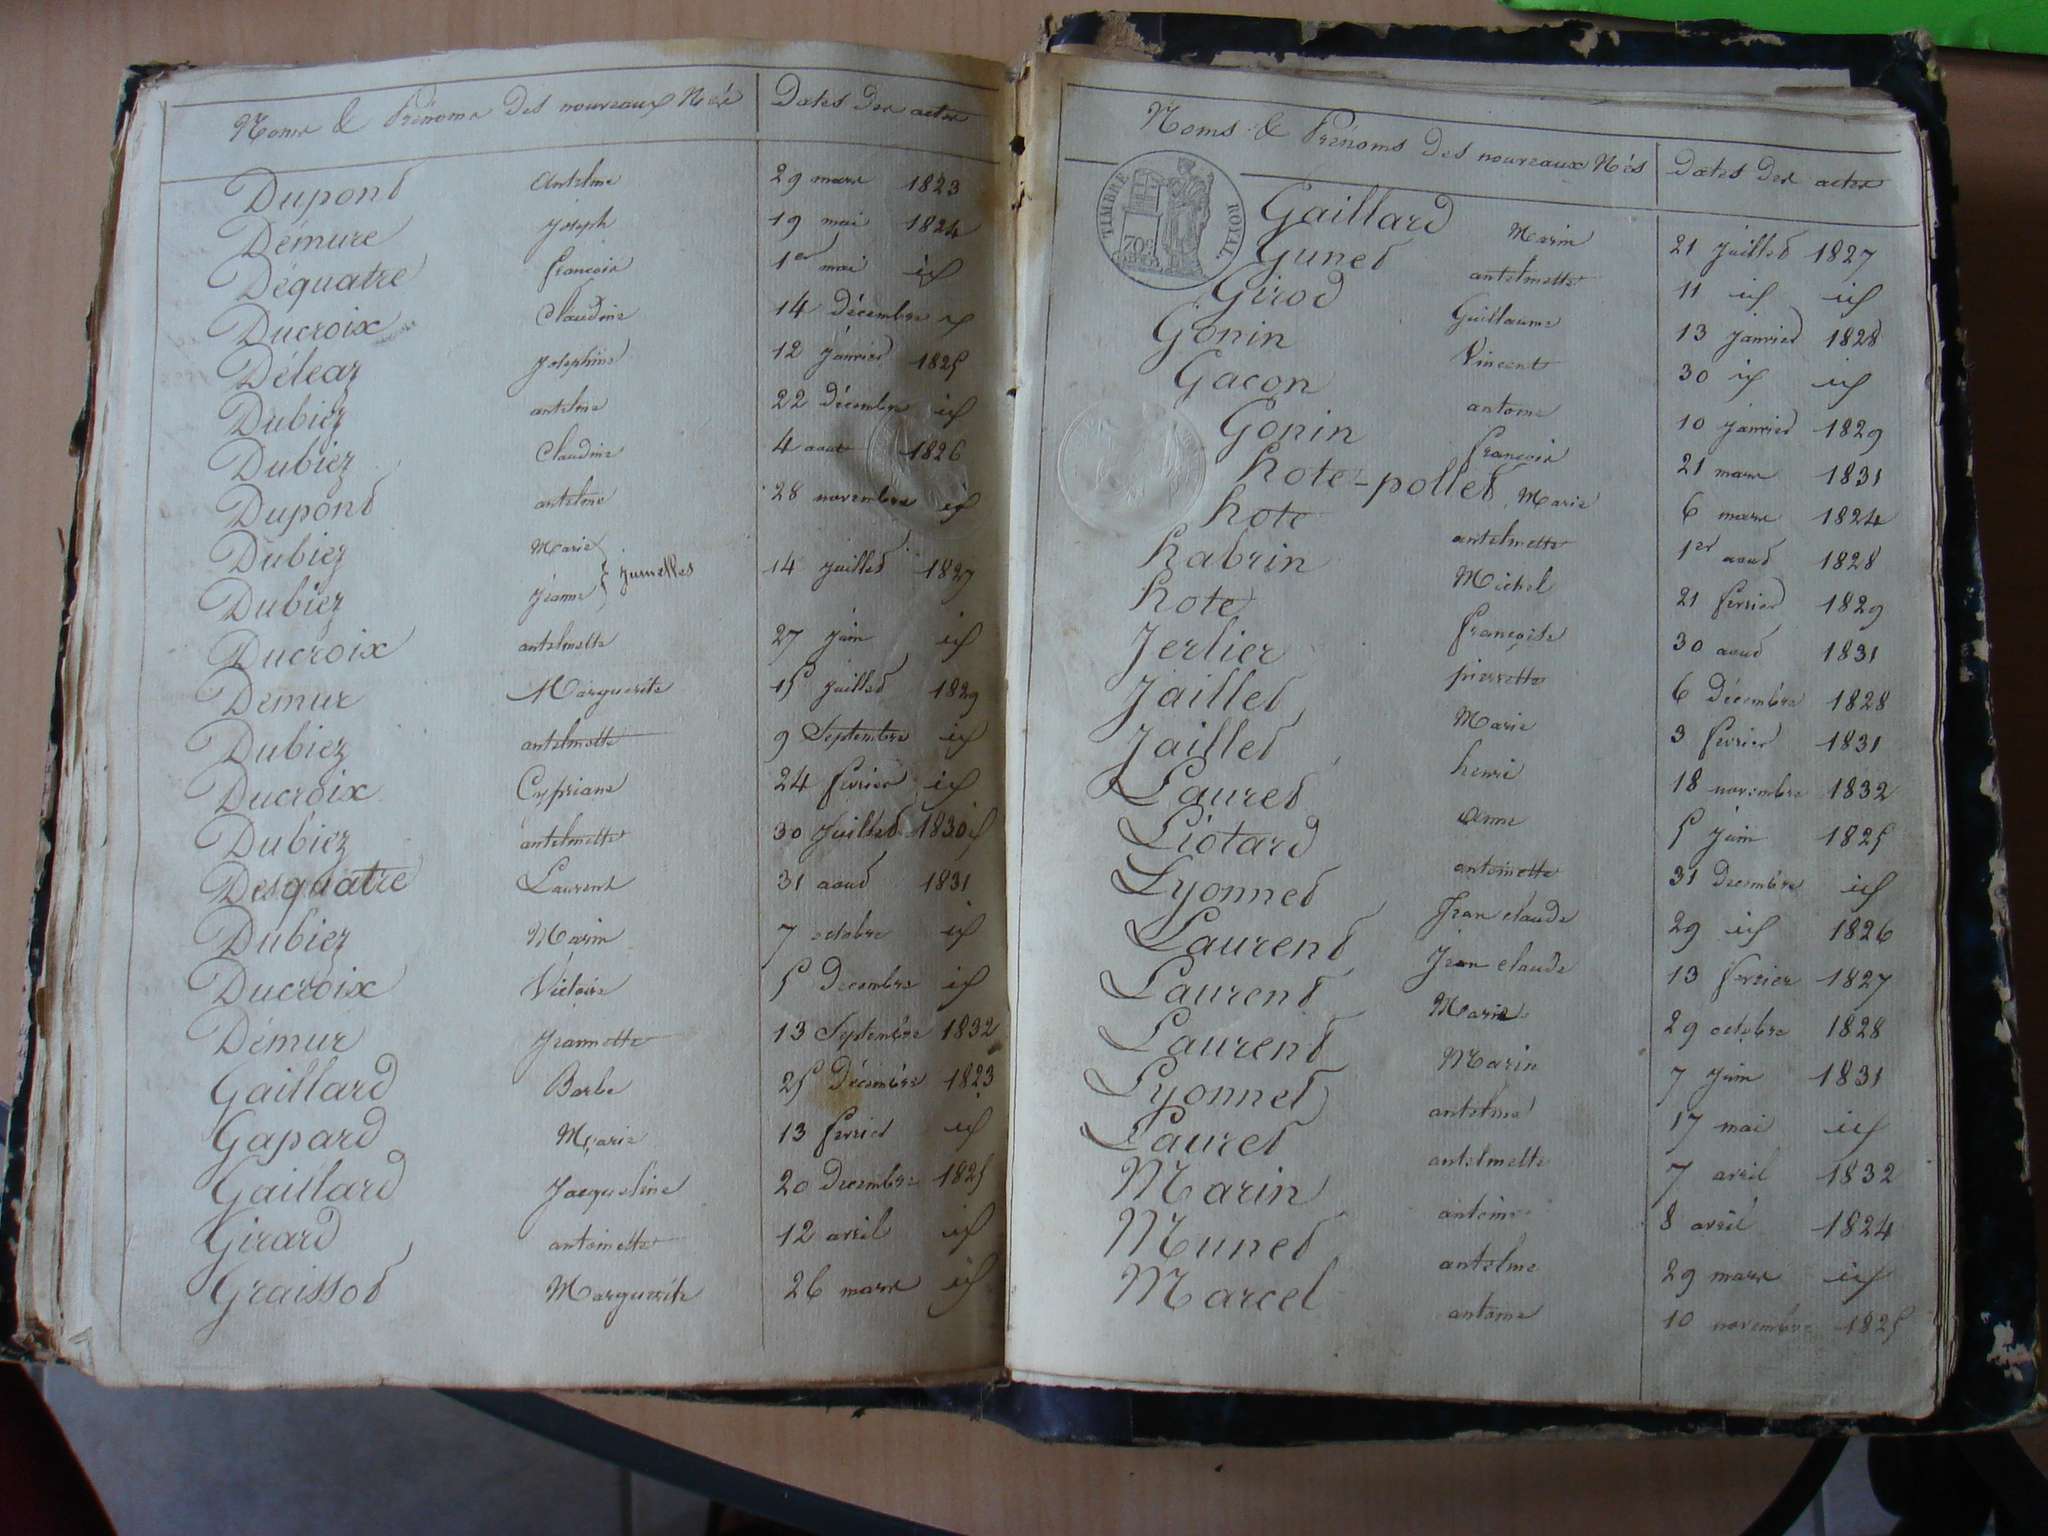 Noms & Prénoms des nouveaux Nés Dates des actes
Dupond Antelme 29 mars 1823
Démure joseph 19 mai 1824
Déquatre francois 1er mai id
Ducroix Claudine 14 décembre id
Déléaz josephine 12 janvier 1825
Dubiez antelme 22 décembre id
Dubiez Claudine 4 aout 1826
Dupond antelme 28 novembre id
Dubiez Marie
Dubiez jeanne jumelles 14 juillet 1827
Ducroix antelmette 27 juin id
Demur Marguerite 15 juillet 1829
Dubiez antelmette 9 Septembre id
Ducroix Cypriane 24 fevrier id
Dubiez antelmette 30 juillet 1830
Desquatre Laurent 31 aout 1831
Dubiez Marin 7 octobre id
Ducroix Victoire 5 Decembre id
Démur jeannette 13 Septembre 1832
Gaillard Barbe 25 Décembre 1823
Gapard Marie 13 fevrier id
Gaillard jacqueline 20 decembre 1825
Girard antoinette 12 avril id
Graissot Marguerite 26 mars id
Noms & Prénoms des nouveaux Nés Dates des actes
TIMBRE ROYAL
70c
Gaillard Marin 21 juillet 1827
Gunet antelmette 11 id id
Girod Guillaume 13 janvier 1828
Gonin Vincent 30 id id
Gacon antoine 10 janvier 1829
Gonin francois 21 mars 1831
hote-pollet Marie 6 mars 1824
hote antelmette 1er aout 1828
habrin Michel 21 fevrier 1829
hote françoise 30 aout 1831
Jerlier pierrette 6 Décembre 1828
Jaillet Marie 3 fevrier 1831
Jaillet henri 18 novembre 1832
Lauret Anne 5 juin 1825
Liotard antoinette 31 decembre id
Lyonnet Jean claude 29 id 1826
Laurent Jean claude 13 fevrier 1827
Laurent Marie 29 octobre 1828
Laurent Marin 7 juin 1831
Lyonnet antelme 17 mai id
Lauret antelmette 7 avril 1832
Marin antoine 8 avril 1824
Munet antelme 29 mars id
Marcel antoine 10 novembre 1825